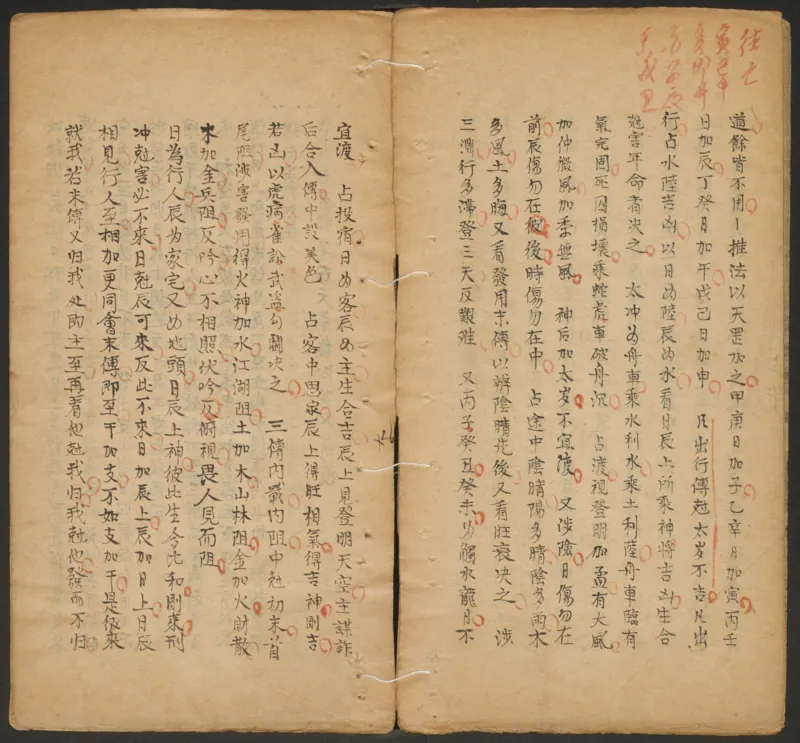 往亡
寅巳申
亥卯午
酉子辰
未戌丑
道餘皆不用丨推法以天罡加之甲庚日加子乙辛日加寅丙壬
日加辰丁癸日加午戊己日加申 凡出行傳尅太岁不吉凡出
行占水陸吉凶以日为陸辰为水看日辰上所乘神將吉凶生合
尅害年命者决之 太冲为舟車乘水利水乘土利陸舟車臨有
氣完固死囚損壞乘蛇虎車破舟沉 占渡視登明加孟有大風
加仲微風加季無風 神后加太岁不宜渡 又涉險日傷勿在
前辰傷勿在後時傷勿在中 占途中陰晴陽多晴陰多雨木
多風土多晦又看發用末傳以辨陰晴先後又看旺衰决之 涉
三淵行多滯登三天反艱難 又丙子癸丑癸未为觸水龍日不
宜渡 占投宿日为客辰为主生合吉辰上見登明天空主謀詐
后合入傳中設美色 占客中思家辰上得旺相氣得吉神則吉
若凶以虎病雀訟武盗勾鬭决之 三傳內戰內阻中尅初末首
尾阻波害發用得火神加水江湖阻土加木山林阻金加火財散
木加金兵阻反吟心不相照伏吟反俯視畏人見而阻
日為行人辰为家宅又为地頭日辰上神彼此生合比和則來刑
冲尅害必不來日尅辰可來反此不來日加辰上辰加日上日辰
相見行人至相加更同會末傳即至干加支不如支加干是彼來
就我若末傳又归我处即主至再看他尅我归我尅他發而不归